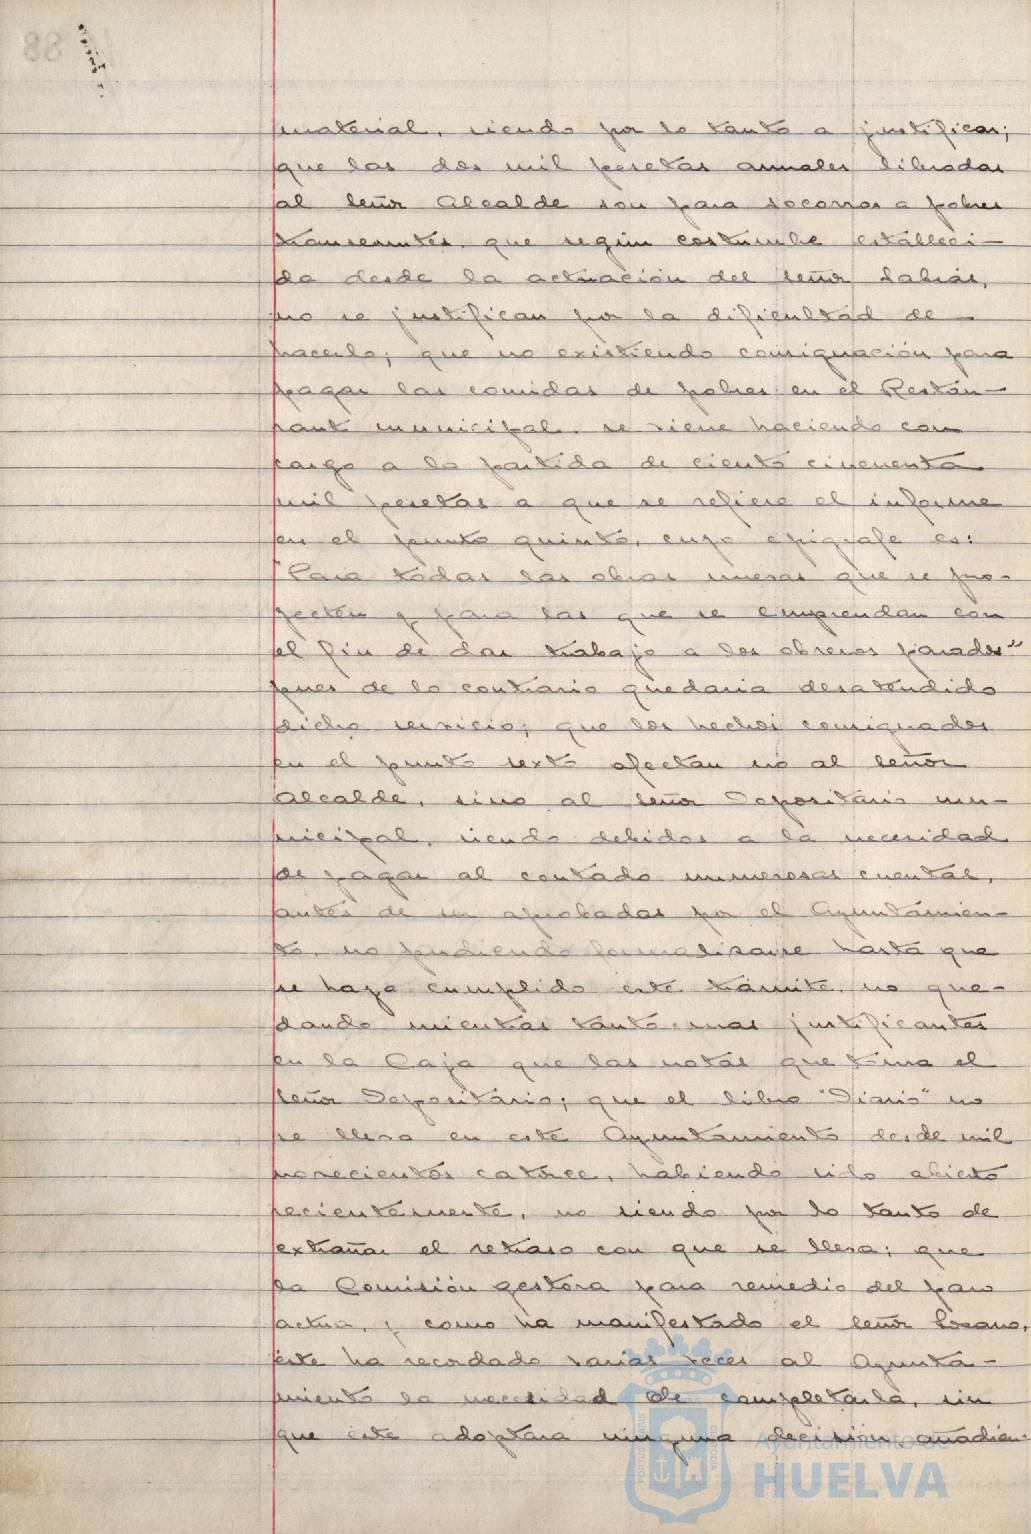 material, siendo por lo tanto a justificar;
que las dos mil pesetas anuales libradas
al señor Alcalde son para socorros a pobres
transeuntes, que según costumbre estableci-
da desde la actuación del señor
no se justifican por la dificultad de
hacerlo; que no existiendo consignación para
pagar las comidas de pobres en el Restau-
rant municipal, se viene haciendo con
cargo a la partida de ciento cincuenta
mil pesetas a que se refiere el informe
en el punto quinto, cuyo epigrafe es:
"Para todas las obras nuevas que se pro-
yecten y para las que se emprendan con
el fin de dar trabajo a los obreros parados"
pues de lo contrario quedaria desatendido
dicho servicio; que los hechos consignados
en el punto sexto afectan no al señor
Alcalde, sino al señor Depositario mu-
nicipal, siendo debidos a la necesidad
de pagar al contado numerosas cuentas,
antes de ser aprobadas por el Ayuntamien-
to, no pudiendo formalizarse hasta que
se haya cumplido este trámite, no que-
dando mientras tanto mas justificantes
en la Caja que las notas que toma el
señor Depositario; que el libro "Diario" no
se lleva en este Ayuntamiento desde mil
novecientos catorce, habiendo sido abierto
recientemente, no siendo por lo tanto de
extrañar el retraso con que se lleva; que
la Comisión gestora para remedio del paro
actua, y como ha manifestado el señor Lozano,
éste ha recordado varias veces al Ayunta-
miento la necesidad de completarla, sin
que éste adoptara ninguna decisión añadien-
Ayuntamiento de
HUELVA